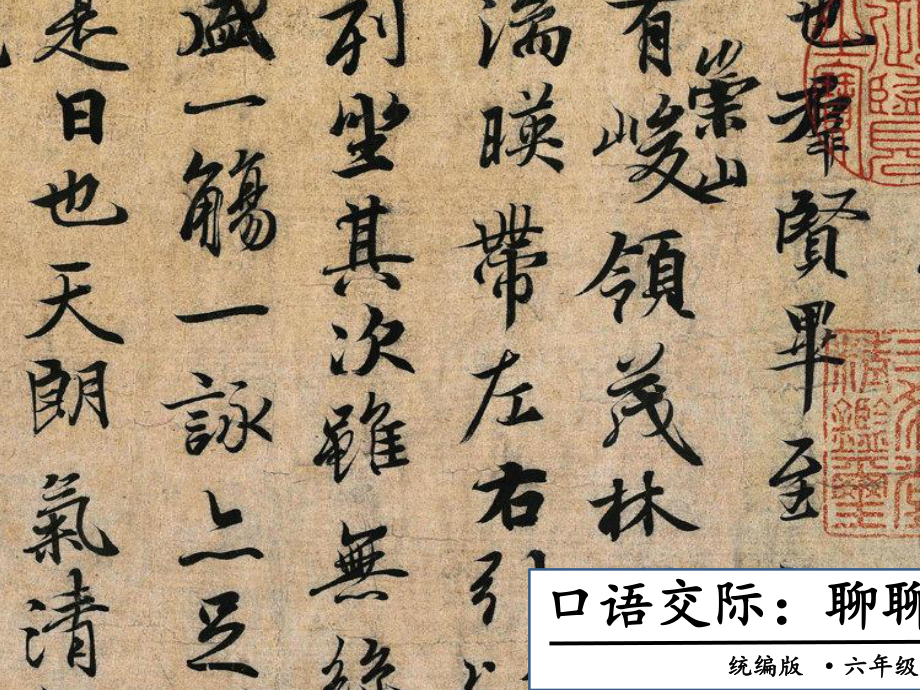 也羣賢畢至
有崇山峻領茂林
湍暎帶左右引
列坐其次雖無絲
盛一觴一詠亦足
是日也天朗氣清
精鑑璽
口语交际：聊聊
统编版 ·六年级